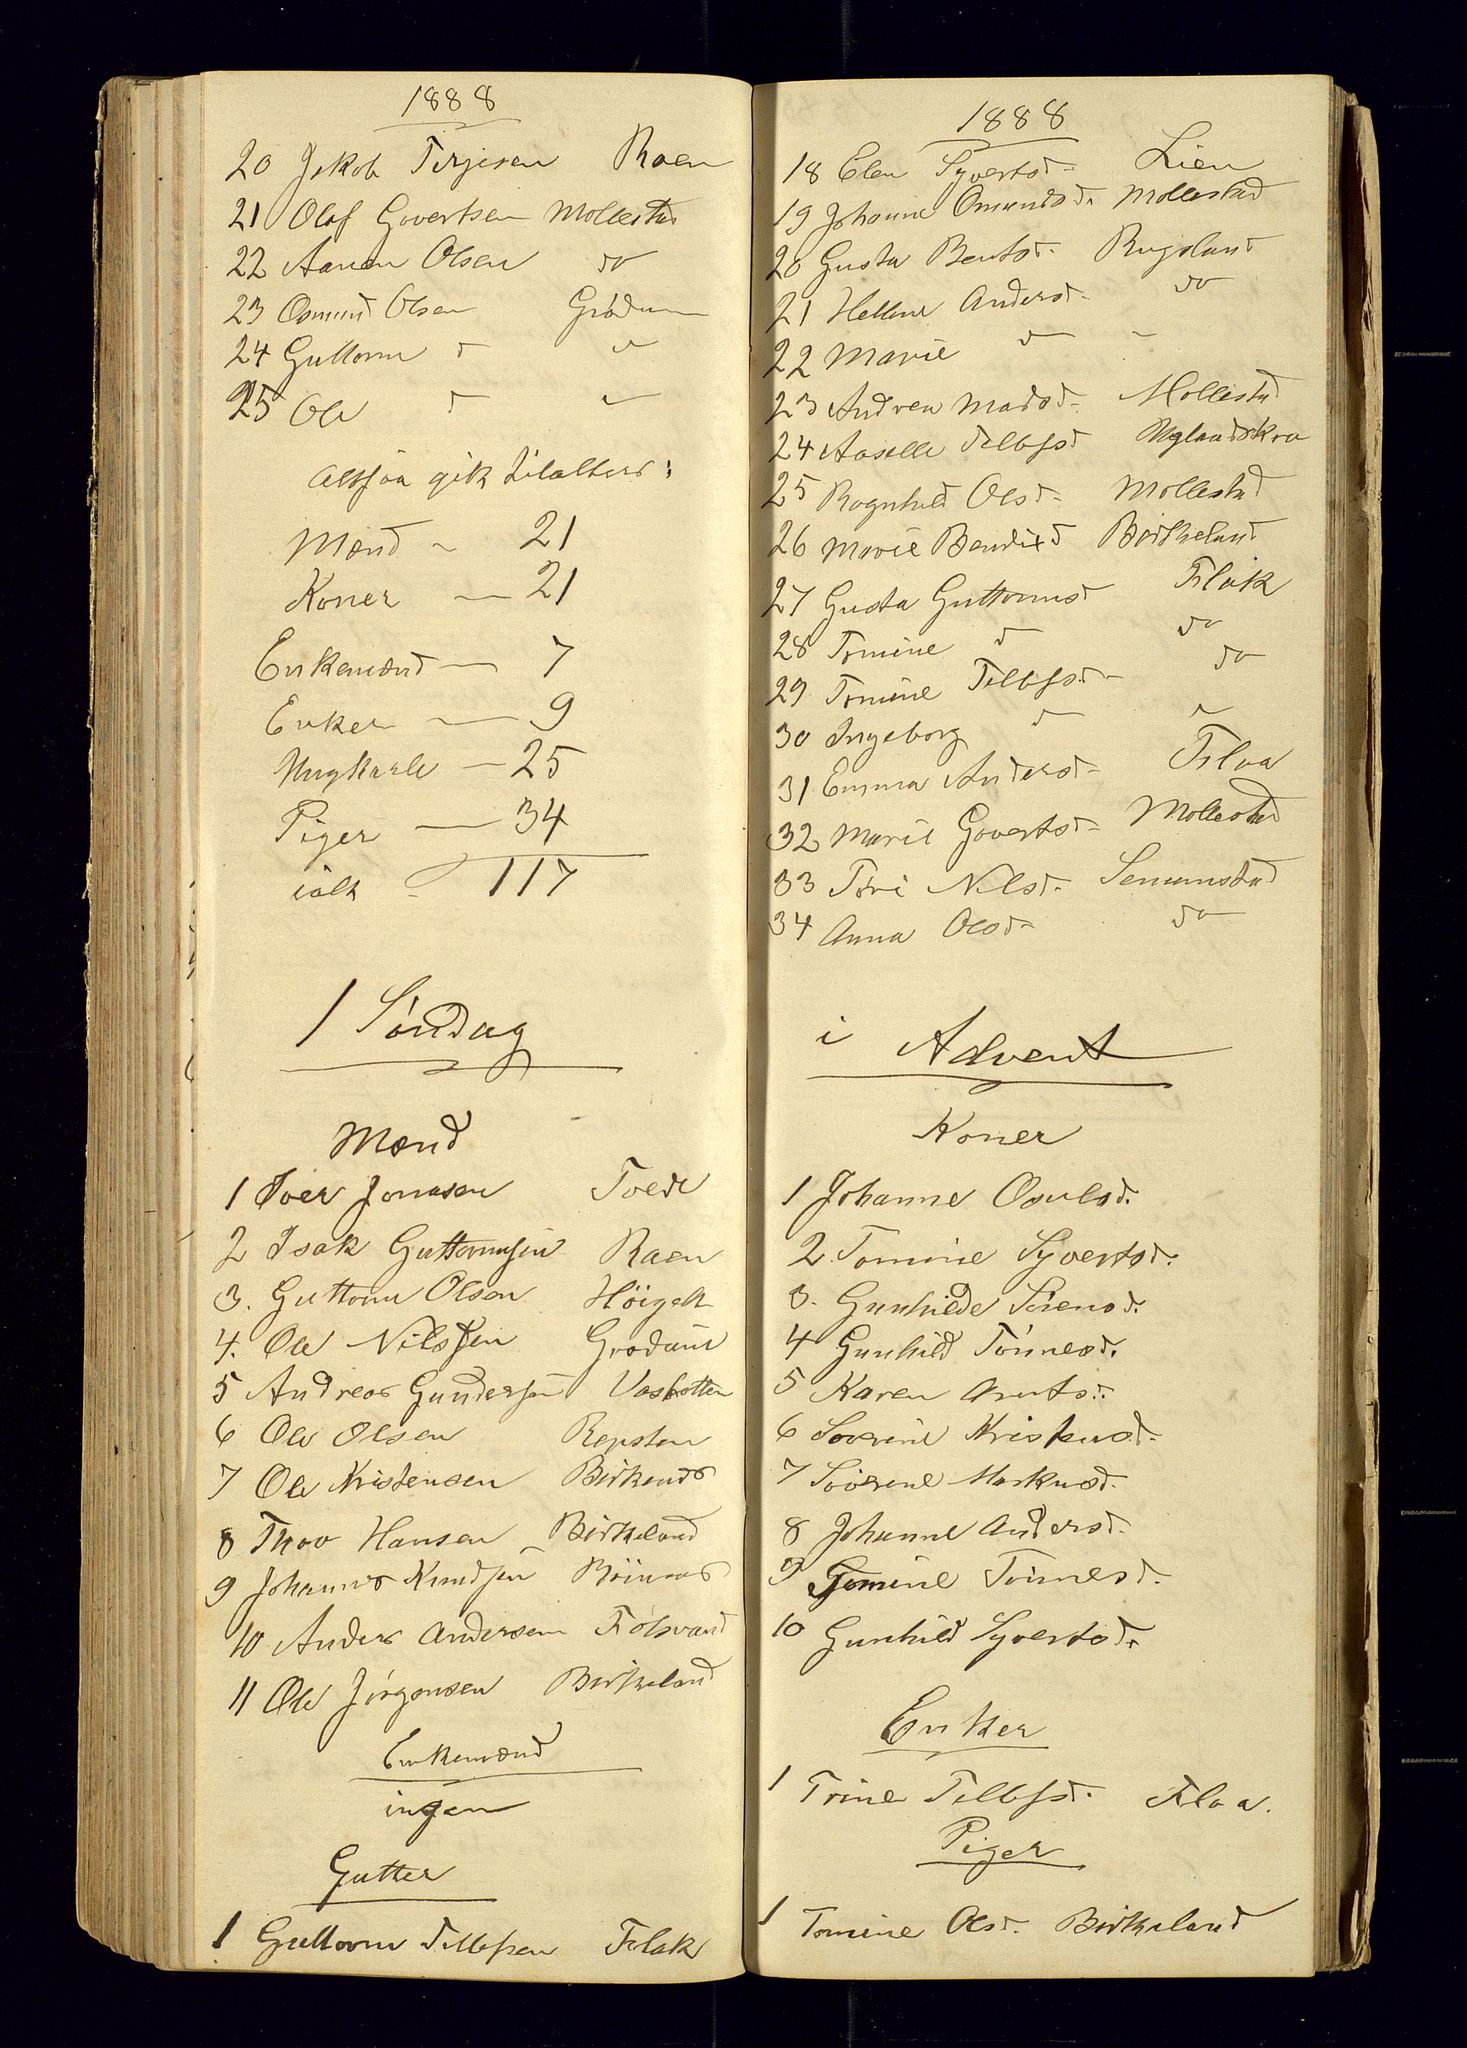 1888
20 Jakob Terjesen Raen
21 Olaf Govertsen Mollestad
22 Aanen Olsen do
23 Osmund Olsen Grødum
24 Guttorm d "
25 Ole d "
altsaa gik tilalters:
Mænd - 21
Koner - 21
Enkemænd - 7
Enker - 9
Ungkarle - 25
Piger - 34
ialt - 117
1 Søndag
Mænd
1 Iver Jonasen Tvede
2 Isak Guttormsen Raen
3. Guttorm Olsen Høigelt
4. Ole Nilssen Grødum
5 Andreas Gundersen Vasbotten
6 Ole Olsen Repsten
7 Ole Kristensen Birkenes
8 Thov Hansen Birkeland
9 Johannes Knudsen
10 Anders Andersen
11 Ole Jørgensen Birkeland
Enkemænd
ingen
Gutter
1 Guttorm Tellefsen Flak
1888
18 Elen Syvertsd. Lien
19 Johanne Osmundsd. Mollestad
20 Gusta Bentsd. Rugsland
21 Helene Andersd. do
22 Marie d -
23 Andrea Madsd. Mollestad
24 Aaselle Tellefsd Uglandskra
25 Ragnhild Olsd. Mollestad
26 Marie Bendixd Birkeland
27 Gusta Guttormsd Flak
28 Tomine d do
29 Tomine Tellefsd. do
30 Ingeborg d "
31 Emma Andersd. Flaa
32 Marie Govertsd. Mollestad
33 Tori Nilsd. Senumstad
34 Anna Olsd. do
i Advent
Koner
1 Johanne Osulsd.
2. Tomine Syvertsd.
3. Gunhilde Sørensd.
4 Gunhild Tønnesd.
5 Karen
6 Severine Kristensd.
7 Severine Markusd.
8 Johanne Andersd.
9 Tomine Tønnesd.
10 Gunhild Syvertsd.
Enker
1 Trine Tellefsd. Flaa.
Piger
1 Tomine Olsd. Birkeland